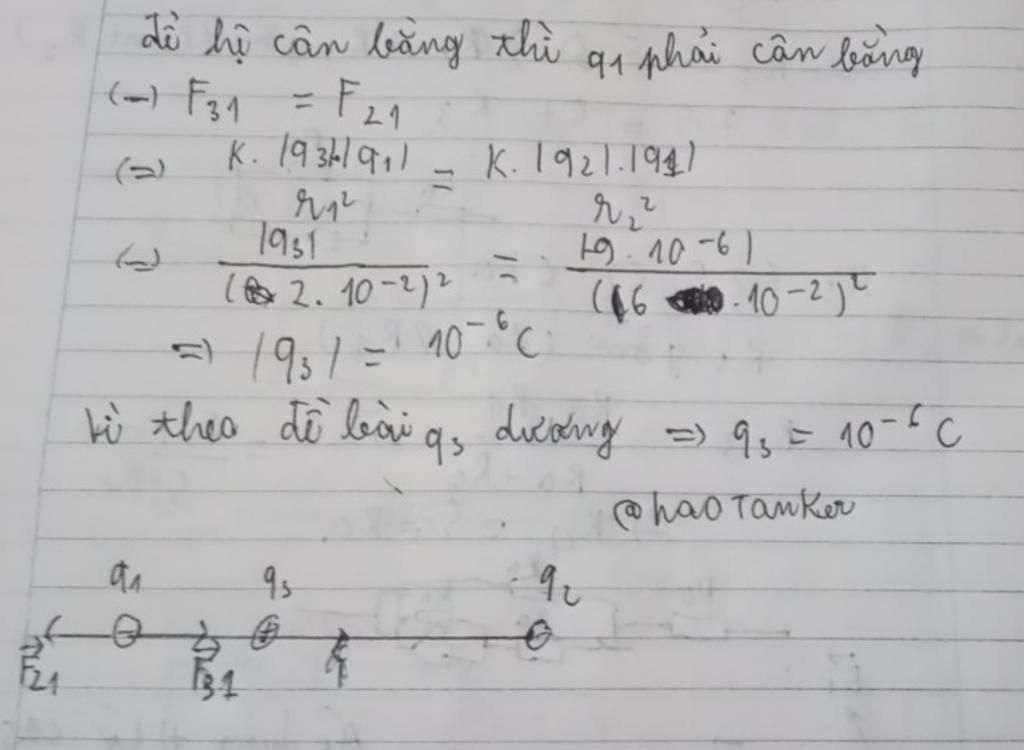 để hệ cân bằng thì q1 phải cân bằng
(=) F31 = F21
(=) K.|q3|.|q1| / r1² = K.|q2|.|q1| / r2²
(=) |q3| / (2.10⁻²)² = |-9.10⁻⁶| / (6.10⁻²)²
=> |q3| = 10⁻⁶C
Vì theo đề bài q3 dương => q3 = 10⁻⁶C
@haoTanker
q1 q3 q2
F21 F31